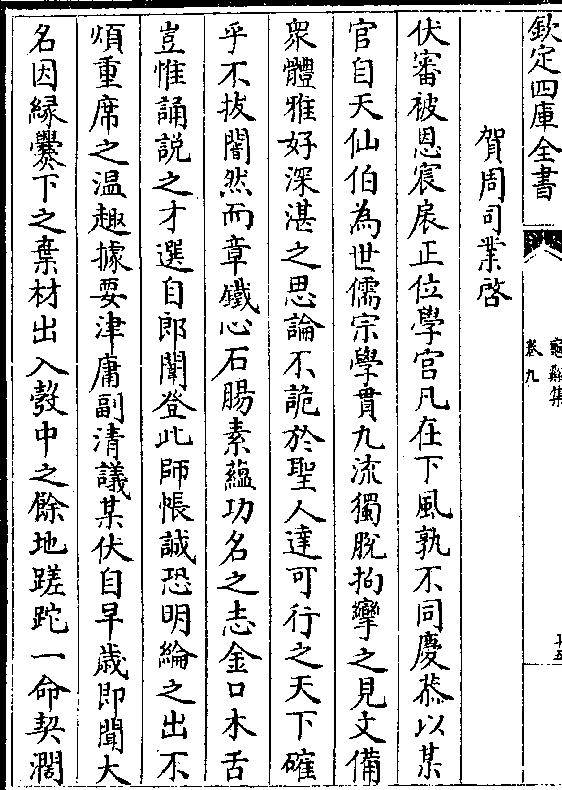 欽定四庫全書
卷九
賀周司業啓
伏審被恩宸扆正位學官凡在下風孰不同慶恭以某
官自天仙伯為世儒宗學貫九流獨脫拘攣之見文備
衆體雅好深湛之思論不詭於聖人達可行之天下確
乎不拔闇然而章鐵心石腸素蘊功名之志金口木舌
豈惟誦説之才選自郎闈登此師帳誠恐明綸之出不
煩重席之温趣據要津庸副清議某伏自早歲即聞大
名因緣爨下之棄材出入彀中之餘地蹉跎一命契濶